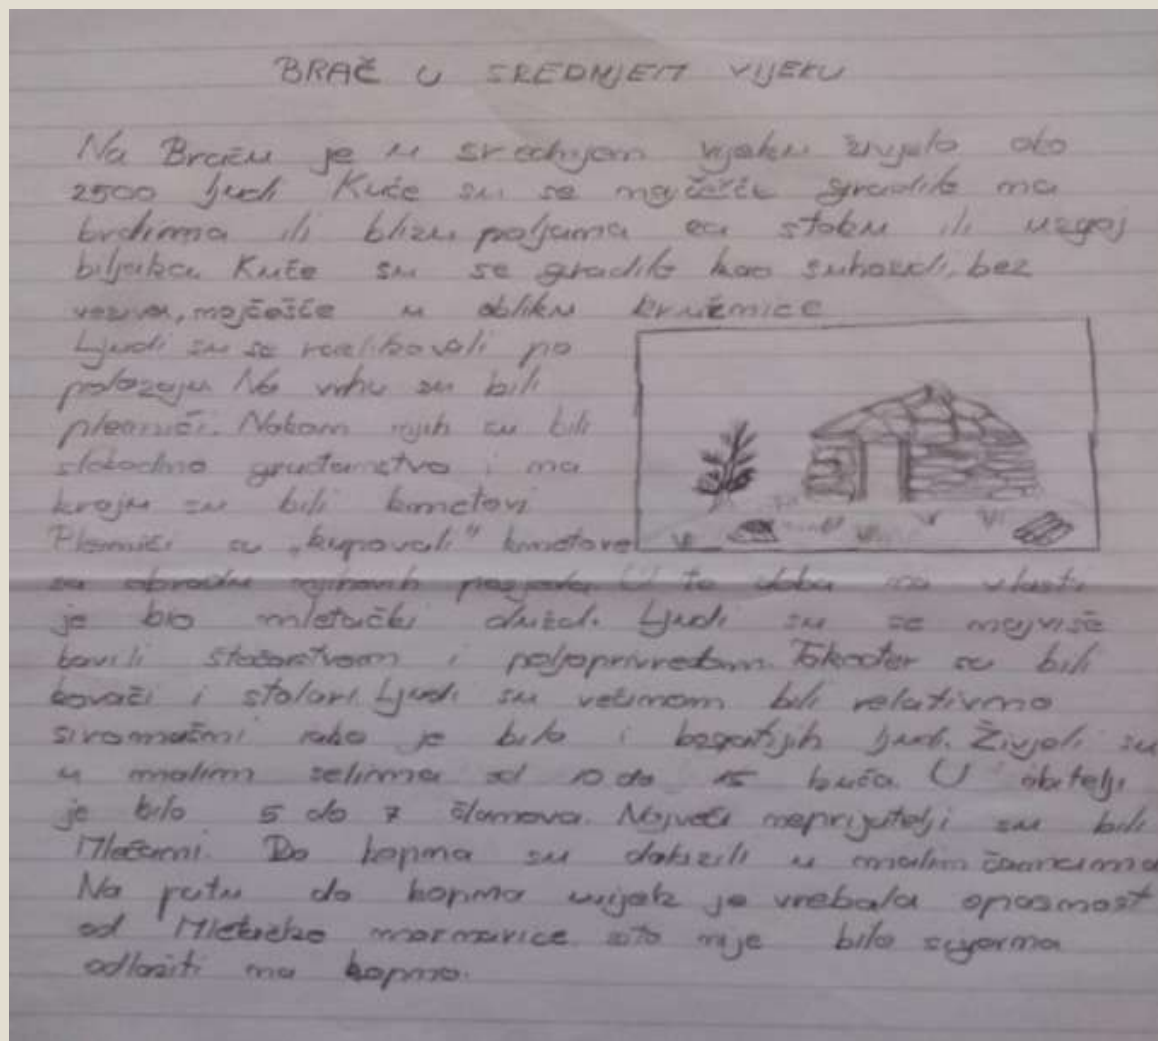 BRAČ U SREDNJEM VIJEKU
Na Braču je u srednjem vijeku živjelo oko
2500 ljudi Kuće su se najčešće gradile na
brdima ili blizu poljama za stoku ili uzgoj
biljaka Kuće su se gradile kao suhozidi, bez
veziva, najčešće u obliku kružnice
Ljudi su se razlikovali po
položaju Na vrhu su bili
plemići. Nakon njih su bili
slobodno građanstvo i na
kraju su bili kmetovi
Plemići su „kupovali" kmetove
za obradu njihovih posjeda U to doba na vlasti
je bio mletački
Ljudi su se najviše
bavili stočarstvom i poljoprivredom. Također su bili
kovači i stolari. Ljudi su većinom bili relativno
siromašni iako je bilo i bogatijih ljudi. Živjeli su
u malim selima od 10 do 15 kuća U obitelji
je bilo 5 do 7 članova. Najveći neprijatelji su bili
Mlečani. Do kopna su dolazili u malim čamcima
Na putu do kopna uvijek je vrebala opasnost
od Mletačke mornarice zato nije bilo sigurno
odlaziti na kopno.